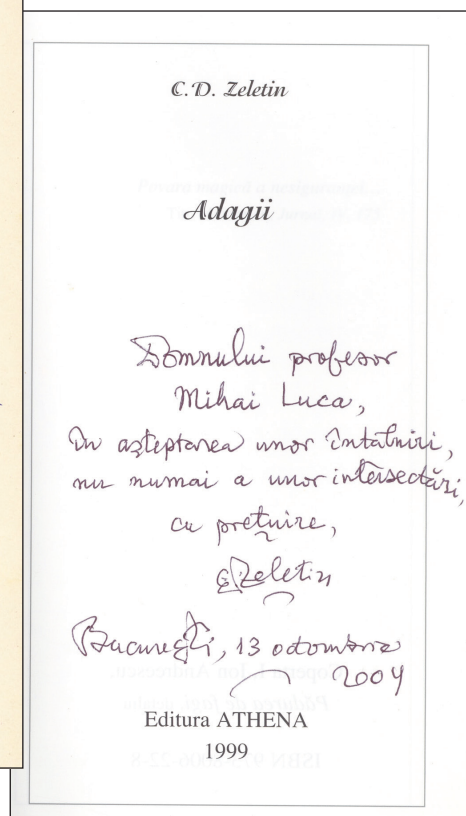 C.D. Zeletin
Adagii
Domnului profesor
Mihai Luca,
În așteptarea unor întâlniri,
nu numai a unor intersectări,
cu prețuire,
CDZeletin
București, 13 octombrie
2004
Editura ATHENA
1999